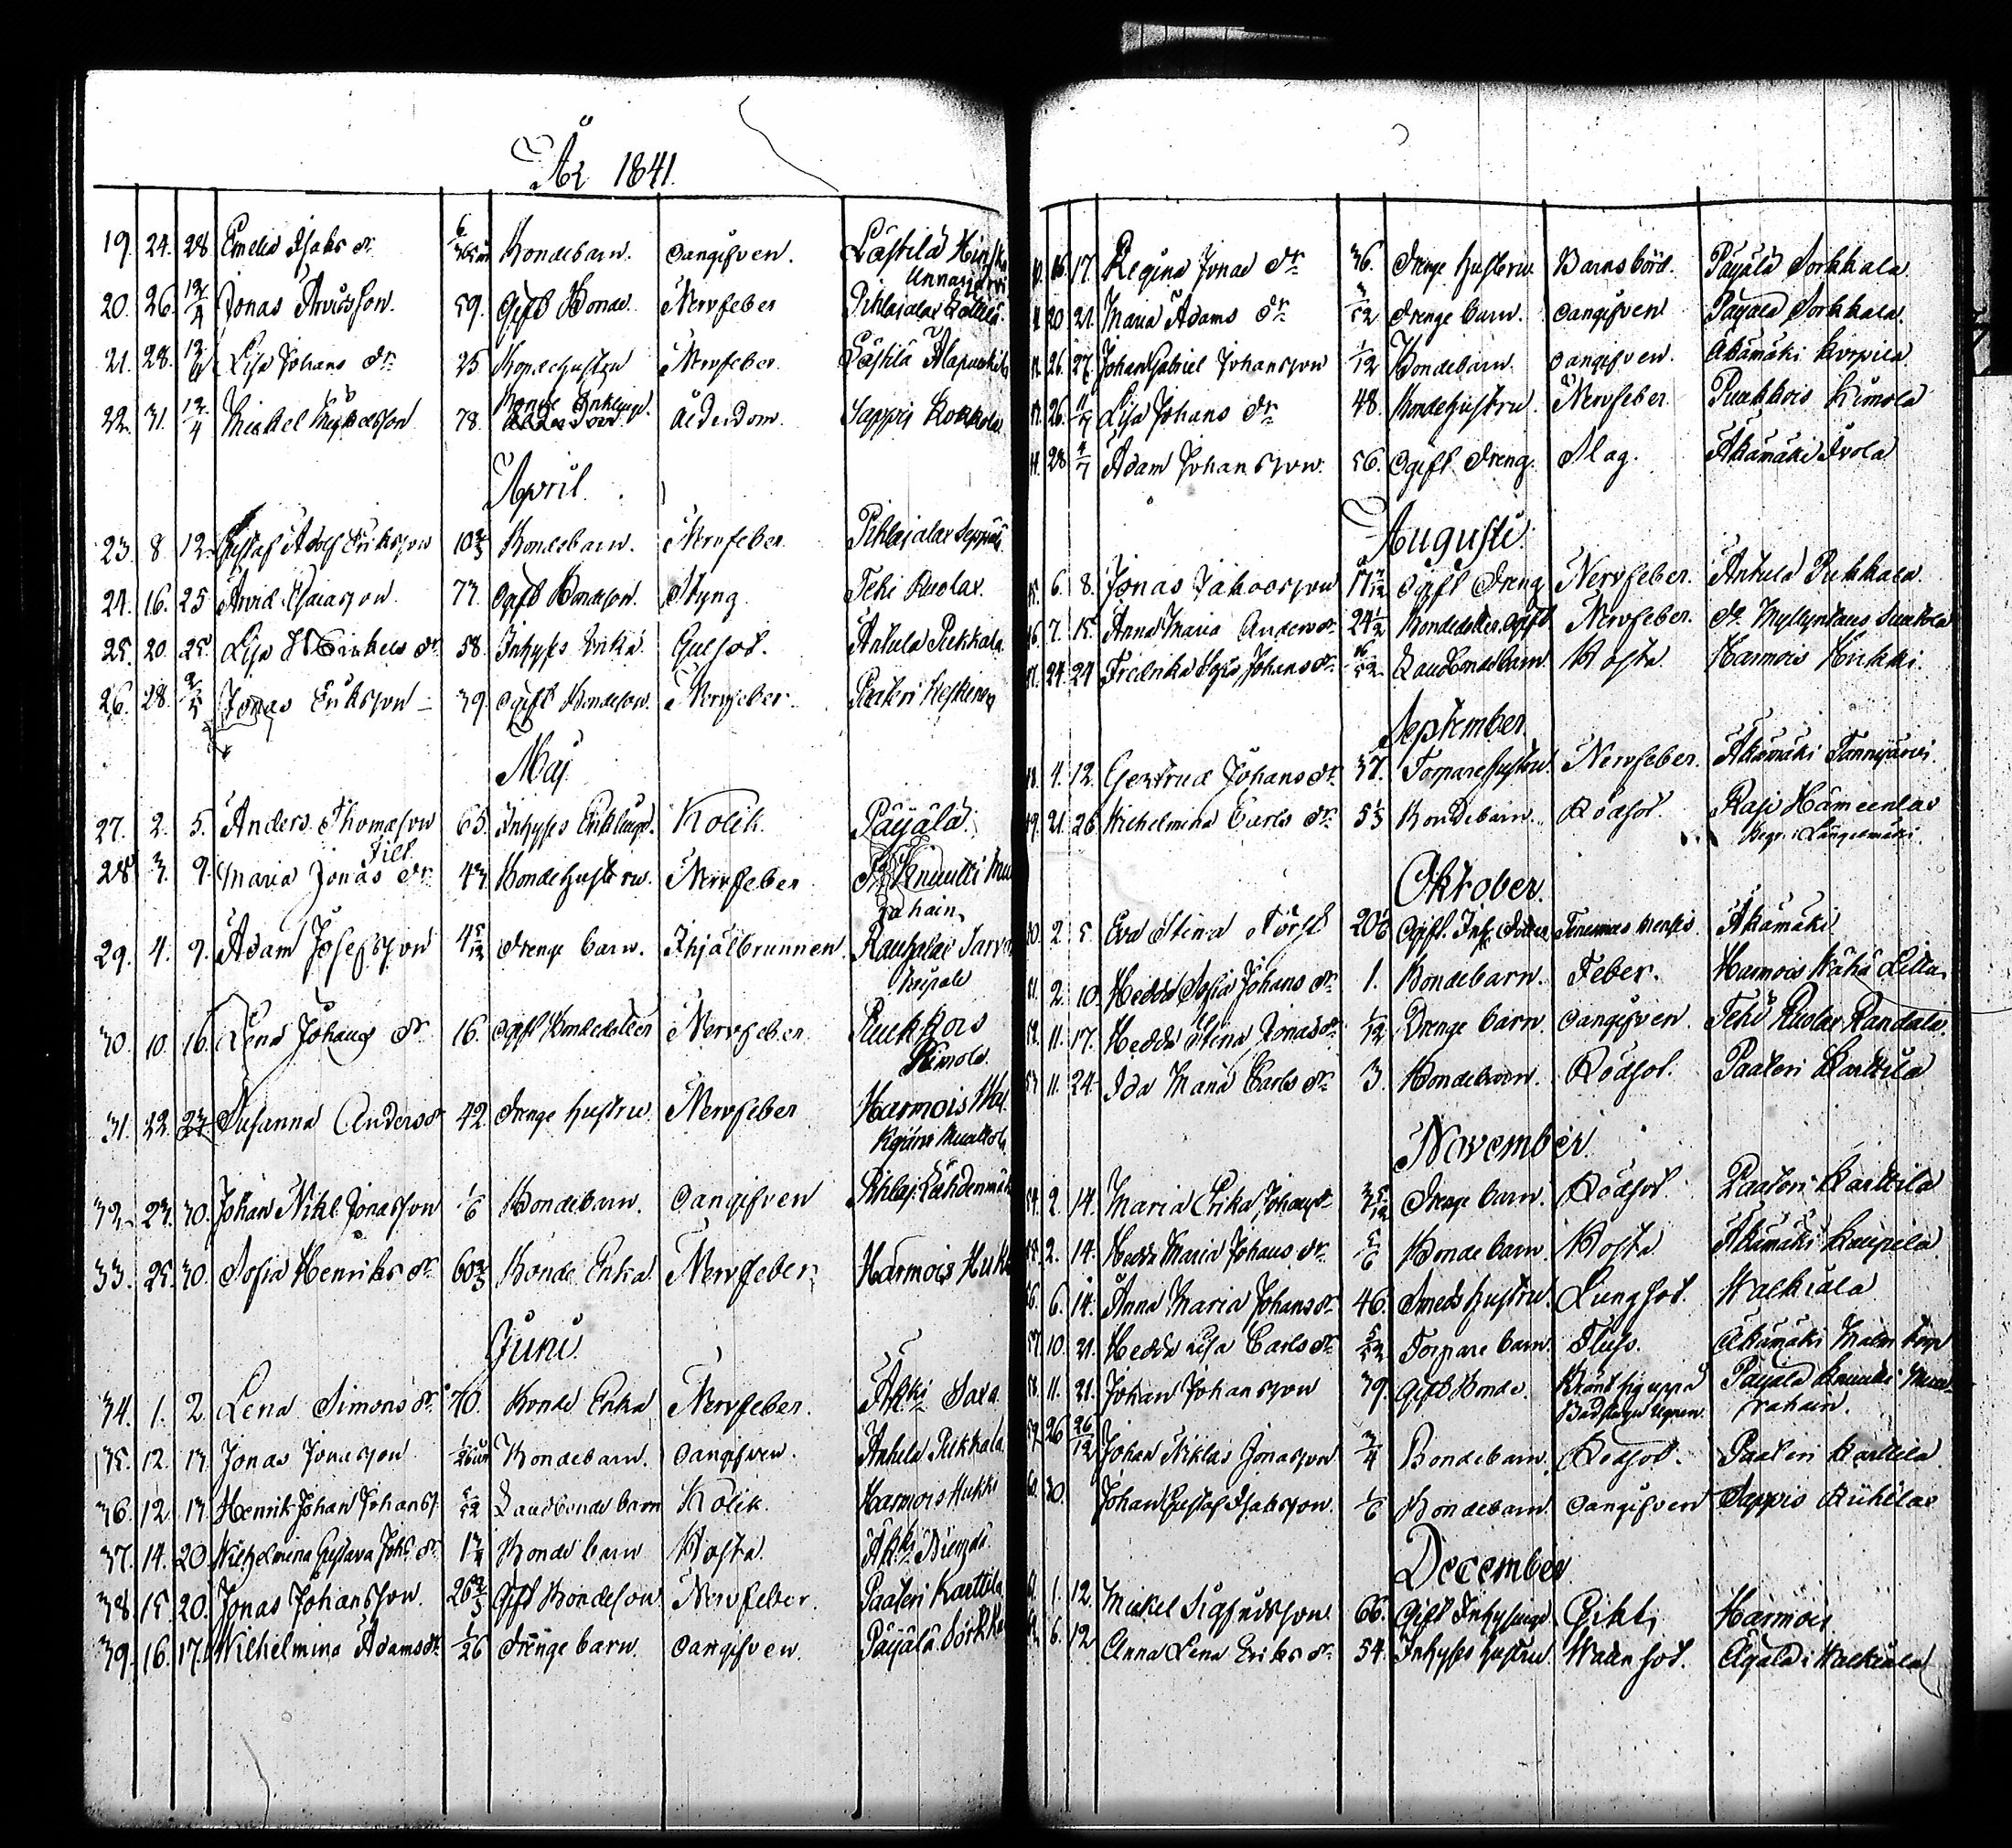 År 1841.
19. 24. 28 Emelia Isaks dr. Bondebarn. oangifven. Lästilä
Unnasjärvi
20. 26. 12/4 Jonas Arvidsson. 59. Gift Bonde. Nervfeber Pihlajalax
21. 28. 12/4 Lisa Johans dr. 25 Bondehustru Nervfeber. Lästilä
Bonde Enkling.
22. 31. 12/4 Mickel Mickelsson 78. ålderdom. Sappis Kokkola
April.
23. 8. 12. Gustaf Adolf Eriksson 10 2/3 Bondebarn. Nervfeber. Pihlajalax Seppälä
24. 16. 25 Arvid Isaiasson. 77. Ogift Bondeson. Styng Tehi Ruolax.
25. 20. 25. Lisa Mickels dr. 58. Inhyses Enka. Gulsot. Anhula Pukkala.
26. 28. 2/5 Jonas Eriksson 39. ogift Bondeson. Nervfeber. Paateri Heskinen
Maj
27. 2. 5. Anders Thomasson 65. Inhyses Enkling. Kolik. Päijälä.
28 3. 9. Maria Jonas dr. 43. Bondehustru. Nervfeber Knuutti
rahain
29. 4. 9. Adam Josefsson 4 5/12 Drenge barn. Ihjälbrunnen. Rauhalax
30. 10. 16. Lena Johans dr. 16. ogift Bondedotter Nervfeber. Puukkois
Kimola.
31. 22. 23 Susanna Anders dr 42. Drenge hustru. Nervfeber Harmois
32. 23. 30. Johan Nikl. Jonasson 1/6 Bondebarn. oangifven Pihlaj. Lähdenmäki
33. 25. 30. Sofia Henriks dr. 60 2/3 Bonde Enka. Nervfeber. Harmois
Juni.
34. 1. 2. Lena Simons dr. 70. Bonde Enka Nervfeber. Saxa
35. 12. 13. Jonas Jonasson Bondebarn. oangifven. Anhula Pukkala
36. 12. 13. Henrik Johan Johanss. 5/52 Landbonde barn Kolik. Harmois Hukki
37. 14. 20. Wilhelmina Gustava Joh. dr. 1 3/4 Bonde barn Hosta.
38. 15. 20. Jonas Johansson. 26 2/3 Gift Bondeson. Nervfeber. Paateri Karttila
39. 16. 17. Wilhelmina Adams dr. 1/26 Drenge barn. oangifven. Päijälä Sorkkala
16. 17. Regina Jonas dr. 36. Drenge hustru. Barnsbörd. Päijälä Sorkkala.
20 21. Maria Adams dr. 3/52 Drenge barn. oangifven Päijälä Sorkkala.
26. 27. Johan Gabriel Johansson 1/12 Bondebarn. oangifven. Akämäki
26. 4/7 Lisa Johans dr. 48. Bondehustru. Nervfeber. Puukkois Kimola
28 4/7 Adam Johansson. 56. Ogift Dreng. Slag. Akämäki Ivola
Augusti.
6. 8. Jonas Jakobsson Ogift Dreng Nervfeber. Anhula Pukkala.
7. 15. Anna Maria Anders dr. 24 1/2 Bondedotter. Ogift Nervfeber.
24. 24 Fredrika Johans dr. 16/52 Landbondebarn. Hosta. Harmois Hukki.
September.
4. 12. Gertrud Johans dr. 37. Torparehustru. Nervfeber. Akämäki Tannijärvi.
21. 26. Wilhelmina Carls dr. 5 1/3 Bondebarn. Rödsot.
Begr. i Längelmäki.
Oktober.
2. 5. Eva Stina 20 Ogift. Inh. dotter Akämäki
2. 10. Hedda Sofia Johans dr. 1. Bondebarn. Feber. Harmois
11. 17. Hedda Stina Jonas dr. 1/12 Drenge barn. oangifven. Tehi Ruolax Randala.
11. 24. Ida Maria Carls dr. 3. Bondebarn. Rödsot. Paateri Karttila
November.
2. 14. Maria Erika Johans dr. Drenge barn. Rödsot. Paateri Karttila
2. 14. Hedda Maria Johans dr. 5/6 Bonde barn. Hosta Akämäki Kaupila
6. 14. Anna Maria Johans dr. 46. Smeds hustru. Lungsot. Walkiala
10. 21. Hedda Lisa Carls dr. 5/52 Torpare barn. Fluss. Akämäki Malm torp
11. 21. Johan Johansson 39. Gift Bonde. Bränt sig uppå Päijälä Knuutti
Badstugu ugnen. rahain.
26 26/12 Johan Niklas Jonasson 3/4 Bondebarn. Rödsot. Paateri Karttila
30. Johan Gustaf Isaksson. 1/6 Bondebarn. oangifven Sappis
December
1. 12. Mickel Sigfridsson 66. Gift Inhysing Gikt. Harmois
6. 12. Anna Lena Eriks dr. 54. Inhyses hustru. Wattusot. Walkiala